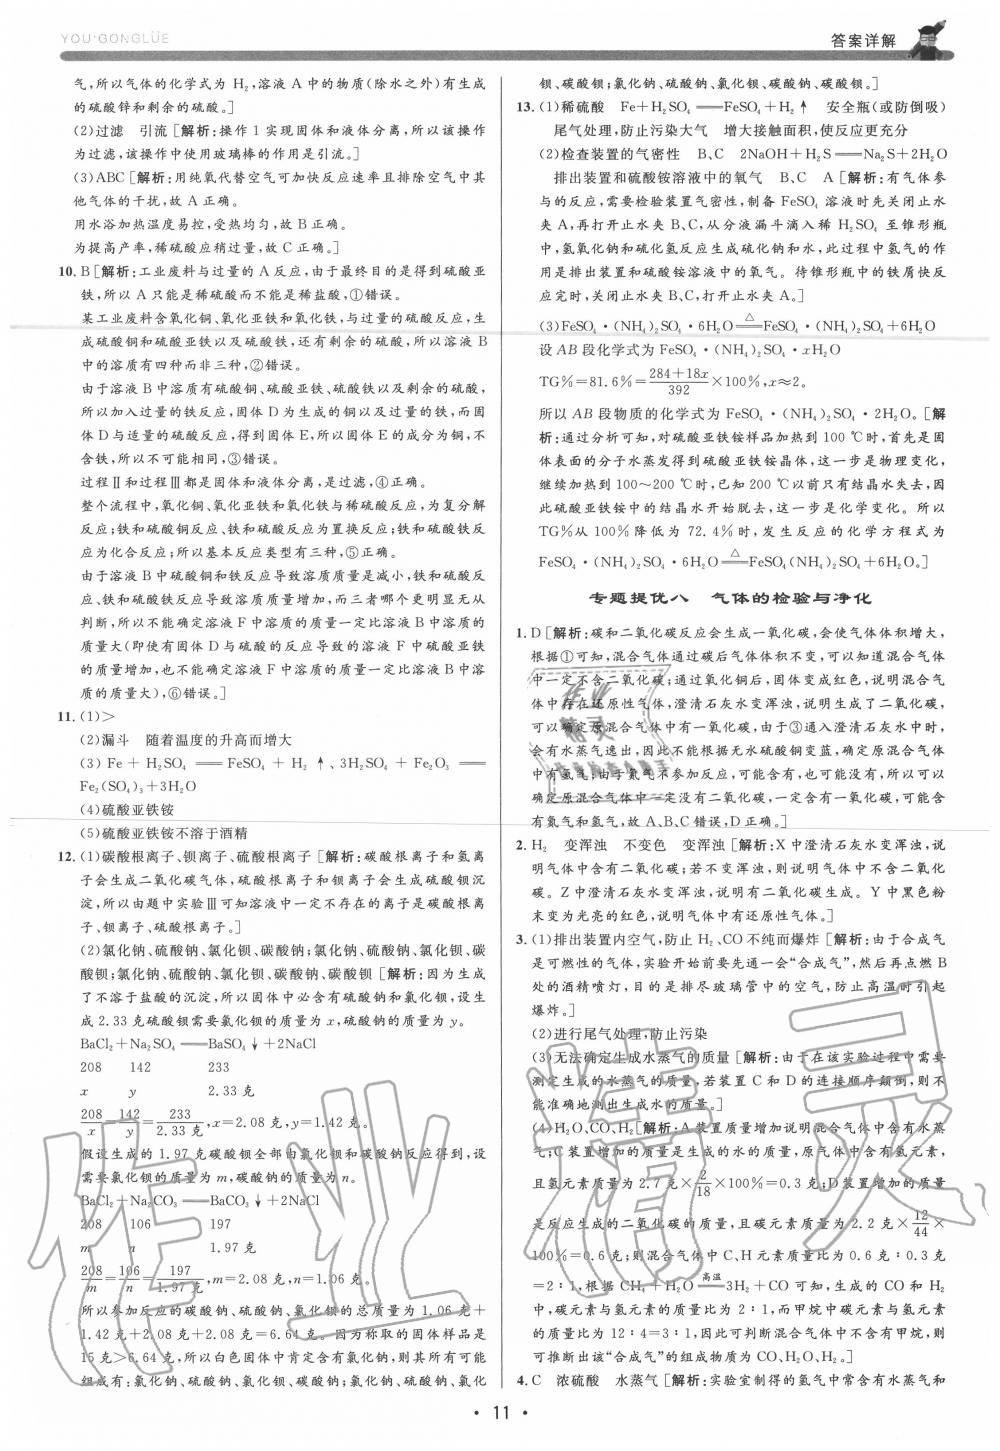 YOU·GONGLÜE
答案详解
气,所以气体的化学式为 H₂,溶液 A 中的物质(除水之外)有生成
的硫酸锌和剩余的硫酸。]
(2)过滤 引流[解析:操作 1 实现固体和液体分离,所以该操作
为过滤,该操作中使用玻璃棒的作用是引流。]
(3)ABC[解析:用纯氧代替空气可加快反应速率且排除空气中其
他气体的干扰,故 A 正确。
用水浴加热温度易控,受热均匀,故 B 正确。
为提高产率,稀硫酸应稍过量,故 C 正确。]
10. B[解析:工业废料与过量的 A 反应,由于最终目的是得到硫酸亚
铁,所以 A 只能是稀硫酸而不能是稀盐酸,①错误。
某工业废料含氧化铜、氧化亚铁和氧化铁,与过量的硫酸反应,生
成硫酸铜和硫酸亚铁以及硫酸铁,还有剩余的硫酸,所以溶液 B
中的溶质有四种而非三种,②错误。
由于溶液 B 中溶质有硫酸铜、硫酸亚铁、硫酸铁以及剩余的硫酸,
所以加入过量的铁反应,固体 D 为生成的铜以及过量的铁,而固
体 D 与适量的硫酸反应,得到固体 E,所以固体 E 的成分为铜,不
含铁,所以不可能相同,③错误。
过程Ⅱ和过程Ⅲ都是固体和液体分离,是过滤,④正确。
整个流程中,氧化铜、氧化亚铁和氧化铁与稀硫酸反应,为复分解
反应;铁和硫酸铜反应、铁和硫酸反应为置换反应;铁和硫酸铁反
应为化合反应;所以基本反应类型有三种,⑤正确。
由于溶液 B 中硫酸铜和铁反应导致溶质质量是减小,铁和硫酸反
应、铁和硫酸铁反应导致溶质质量增加,而三者哪个更明显无从
判断,所以不能确定溶液 F 中溶质的质量一定比溶液 B 中溶质的
质量大(即使有固体 D 与硫酸的反应导致的溶液 F 中硫酸亚铁
的质量增加,也不能确定溶液 F 中溶质的质量一定比溶液 B 中溶
质的质量大),⑥错误。]
11. (1)>
(2)漏斗 随着温度的升高而增大
(3) Fe + H₂SO₄ ══ FeSO₄ + H₂ ↑、3H₂SO₄ + Fe₂O₃ ══
Fe₂(SO₄)₃+3H₂O
(4)硫酸亚铁铵
(5)硫酸亚铁铵不溶于酒精
12. (1)碳酸根离子、钡离子、硫酸根离子[解析:碳酸根离子和氢离
子会生成二氧化碳气体,硫酸根离子和钡离子会生成硫酸钡沉
淀,所以由题中实验Ⅲ可知溶液中一定不存在的离子是碳酸根离
子、钡离子、硫酸根离子。]
(2)氯化钠、硫酸钠、氯化钡、碳酸钠;氯化钠、硫酸钠、氯化钡、碳
酸钡;氯化钠、硫酸钠、氯化钡、碳酸钠、碳酸钡[解析:因为生成
了不溶于盐酸的沉淀,所以固体中必含有硫酸钠和氯化钡,设生
成 2.33 克硫酸钡需要氯化钡的质量为 x,硫酸钠的质量为 y。
BaCl₂+Na₂SO₄ ══BaSO₄↓+2NaCl
208 142 233
x y 2.33 克
208/x=142/y=233/2.33 克,x=2.08 克,y=1.42 克。
假设生成的 1.97 克碳酸钡全部由氯化钡和碳酸钠反应得到,设
需要氯化钡的质量为 m,碳酸钠的质量为 n。
BaCl₂+Na₂CO₃ ══BaCO₃↓+2NaCl
208 106 197
m n 1.97 克
208/m=106/n=197/1.97 克,m=2.08 克,n=1.06 克。
所以参加反应的碳酸钠、硫酸钠、氯化钡的总质量为 1.06 克+
1.42 克+2.08 克+2.08 克=6.64 克。因为称取的固体样品是
15 克>6.64 克,所以白色固体中肯定含有氯化钠,则其所有可能
组成有:氯化钠、硫酸钠、氯化钡、碳酸钠;氯化钠、硫酸钠、氯化
钡、碳酸钡;氯化钠、硫酸钠、氯化钡、碳酸钠、碳酸钡。]
13. (1)稀硫酸 Fe+H₂SO₄ ══FeSO₄+H₂↑ 安全瓶(或防倒吸)
尾气处理,防止污染大气 增大接触面积,使反应更充分
(2)检查装置的气密性 B、C 2NaOH+H₂S══Na₂S+2H₂O
排出装置和硫酸铵溶液中的氧气 B、C A[解析:有气体参
与的反应,需要检验装置气密性,制备 FeSO₄ 溶液时先关闭止水
夹 A,再打开止水夹 B、C,从分液漏斗滴入稀 H₂SO₄ 至锥形瓶
中,氢氧化钠和硫化氢反应生成硫化钠和水,此过程中氢气的作
用是排出装置和硫酸铵溶液中的氧气。待锥形瓶中的铁屑快反
应完时,关闭止水夹 B、C,打开止水夹 A。]
(3)FeSO₄·(NH₄)₂SO₄·6H₂O══△══FeSO₄·(NH₄)₂SO₄+6H₂O
设 AB 段化学式为 FeSO₄·(NH₄)₂SO₄·xH₂O
TG%=81.6%=284+18x/392×100%,x≈2。
所以 AB 段物质的化学式为 FeSO₄·(NH₄)₂SO₄·2H₂O。[解
析:通过分析可知,对硫酸亚铁铵样品加热到 100 ℃时,首先是固
体表面的分子水蒸发得到硫酸亚铁铵晶体,这一步是物理变化,
继续加热到100～200 ℃时,已知 200 ℃以前只有结晶水失去,因
此硫酸亚铁铵中的结晶水开始脱去,这一步是化学变化。所以
TG%从 100%降低为 72.4%时,发生反应的化学方程式为
FeSO₄·(NH₄)₂SO₄·6H₂O══△══FeSO₄(NH₄)₂SO₄+6H₂O。]
专题提优八 气体的检验与净化
1. D[解析:碳和二氧化碳反应会生成一氧化碳,会使气体体积增大,
根据①可知,混合气体通过碳后气体体积不变,可以知道混合气体
中一定不含二氧化碳;通过氧化铜后,固体变成红色,说明混合气
体中存在还原性气体,澄清石灰水变浑浊,说明生成了二氧化碳,
可以确定原混合气体中有一氧化碳,由于③通入澄清石灰水中时,
会有水蒸气逸出,因此不能根据无水硫酸铜变蓝,确定原混合气体
中有氢气;由于氮气不参加反应,可能含有,也可能没有,所以可以
确定原混合气体中一定没有二氧化碳,一定含有一氧化碳,可能含
有氮气和氢气,故 A、B、C 错误,D 正确。]
2. H₂ 变浑浊 不变色 变浑浊[解析:X 中澄清石灰水变浑浊,说
明气体中含有二氧化碳;若不变浑浊,则说明气体中不含二氧化
碳。Z 中澄清石灰水变浑浊,说明有二氧化碳生成。Y 中黑色粉
末变为光亮的红色,说明气体中有还原性气体。]
3. (1)排出装置内空气,防止 H₂、CO 不纯而爆炸[解析:由于合成气
是可燃性的气体,实验开始前要先通一会“合成气”,然后再点燃 B
处的酒精喷灯,目的是排尽玻璃管中的空气,防止高温时引起
爆炸。]
(2)进行尾气处理,防止污染
(3)无法确定生成水蒸气的质量[解析:由于在该实验过程中需要
测定生成的水蒸气的质量,若装置 C 和 D 的连接顺序颠倒,则不
能准确地测出生成水的质量。]
(4)H₂O、CO、H₂[解析:A 装置质量增加说明混合气体中含有水蒸
气;C 装置增加的质量是生成的水的质量,原气体中含有氢元素,
且氢元素质量为 2.7 克×2/18×100%=0.3 克;D 装置增加的质量
是反应生成的二氧化碳的质量,且碳元素质量为 2.2 克×12/44×
100%=0.6 克;则混合气体中 C、H 元素质量比为 0.6 克∶0.3 克
=2∶1,根据 CH₄+H₂O══高温══3H₂+CO 可知,生成的 CO 和 H₂
中,碳元素与氢元素的质量比为 2∶1,而甲烷中碳元素与氢元素
的质量比为 12∶4=3∶1,因此可判断混合气体中不含有甲烷,则
可推断出该“合成气”的组成物质为 CO、H₂O、H₂。]
4. C 浓硫酸 水蒸气[解析:实验室制得的氢气中常含有水蒸气和
• 11 •
作业精灵
作业
精灵